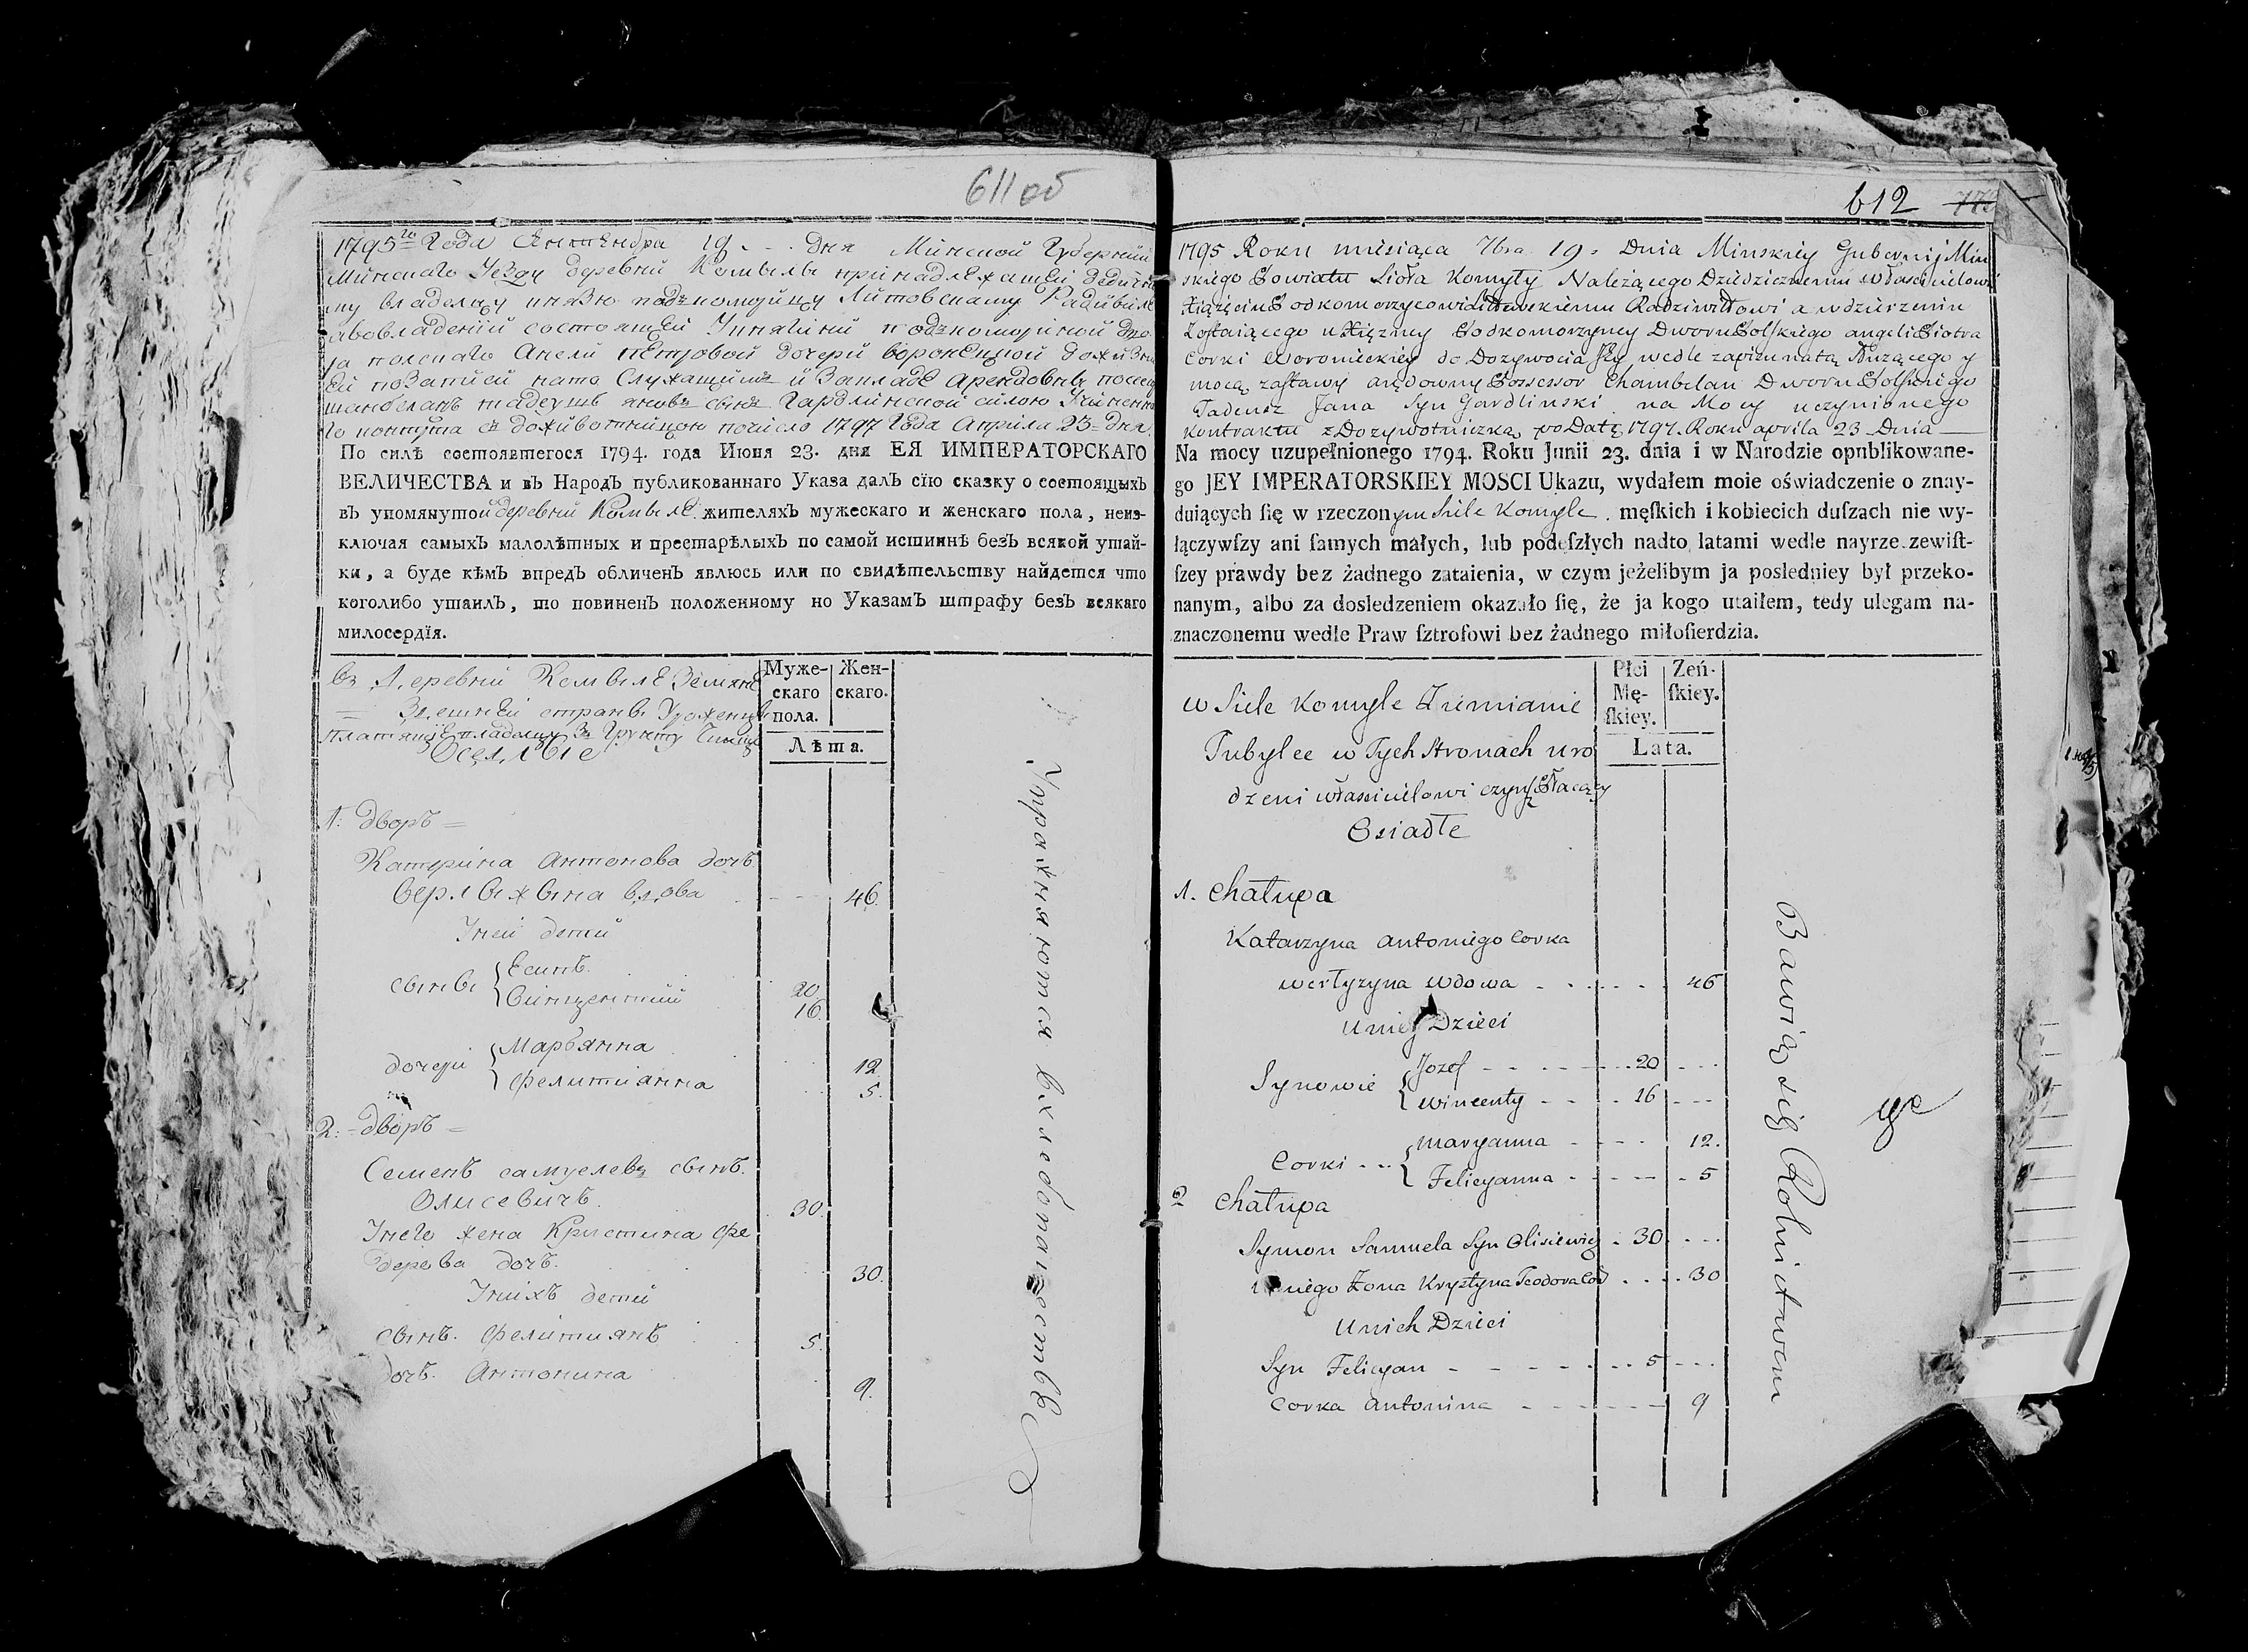 611 об
1795го Года Сентебра 19 дня Минской Губернии
Минскаго Уезду деревни Комыль принадлежащей Дедичн
му владелцу князю подкоморицу Литовскому Радивил
а во владении состоящей Укнягини подкомориной дво
ра полскаго Анели Петровой дочери
ей по записи ната Служащима и Закладе арендовны посес
шанбелань тадеушъ яновъ сынъ Гардлинской силою
го контракта съ доживотницою по число 1797 Года Априла 23 дня
По силѣ состоявшегося 1794. года Июня 23. дня ЕЯ ИМПЕРАТОРСКАГО
ВЕЛИЧЕСТВА и въ Народъ публикованнаго Указа далъ сїю сказку о состоящыхъ
въ упомянутой деревни Комыле жителяхъ мужескаго и женскаго пола, неиз-
ключая самыхъ малолѣтныхъ и престарѣлыхъ по самой истиннѣ безъ всякой утай-
ки, а буде кѣмъ впредъ обличенъ явлюсь или по свидѣтельству найдется что
коголибо утаилъ, то повиненъ положенному по Указамъ штрафу безъ всякаго
милосердїя.
Муже-
скаго
пола.
Жен-
скаго.
Лѣта.
въ Деревни Комыле Земяне
Здешней страны Уроженцы
платящие владелцу За Грунту Чиншъ
Оседлые
1: дворъ
Катерина антонова дочь
верлыжына вдова 46.
Уней дети
сыны { Есипъ. 20
Винцентий 16.
дочери { Марьянна 12
Фелитиянна 5.
2: дворъ
Семенъ самуелевъ сынъ.
Олисевичъ. 30.
Унего жена Кристина Фе
дерова дочь. 30.
Унихъ дети
сынъ. Фелитиянъ 5.
дочь. Антонина 9.
Упражняются в хлебопашестве
612
1795 Roku miesiąca 7bra 19 Dnia Minskiey Gubernij Min
skiego Powiatu Sioła Komyły Należącego Dziedzicznemu włascicielowi
Xiążęciu Podkomorzycowi Litewskiemu Radziwiłłowi a w dzierzeniu
Zostaiącego u Xięzney Podkomorzyney Dworu Polskiego angeli Piotra
Corki Woronieckiey do Dozywocia Jey wedle zapisu natą służącego y
mocą zastawy arędowny Possessor Chambelan Dworu Polskiego
Tadeusz Jana Syn Gardlinski na Mocy uczynionego
Kontraktu z Dozywotniczką po Datę 1797. Roku aprila 23 Dnia
Na mocy uzupełnionego 1794. Roku Junii 23. dnia i w Narodzie opublikowane-
go JEY IMPERATORSKIEY MOSCI Ukazu, wydałem moie oświadczenie o znay-
duiących ſię w rzeczonym Siele Komyle męſkich i kobiecich duſzach nie wy-
łączywſzy ani ſamych małych, lub podeſzłych nadto latami wedle nayrzezewiſt-
ſzey prawdy bez żadnego zataienia, w czym jeżelibym ja posledniey był przeko-
nanym, albo za dosledzeniem okazało ſię, że ja kogo utaiłem, tedy ulegam na-
znaczonemu wedle Praw ſztrofowi bez żadnego miłoſierdzia.
Płci
Mę-
ſkiey.
Zeń-
ſkiey.
Lata.
w Siele Komyle Ziemianie
Tubylce w Tych Stronach uro
dzeni właścicielowi czynsz Płacący
Osiadłe
1. Chałupa
Katarzyna antoniego Corka
werłyzyna wdowa 46
Uniey Dzieci
Synowie { Jozef 20
Wincenty 16
Corki { Maryanna 12.
Felicyanna 5
2 Chałupa
Symon Samuela Syn Olisiewicz 30
Uniego Zona Krystyna Teodora Cor 30
Unich Dzieci
Syn Felicyan 5
Corka Antonina 9
Bawią się Rolnictwem